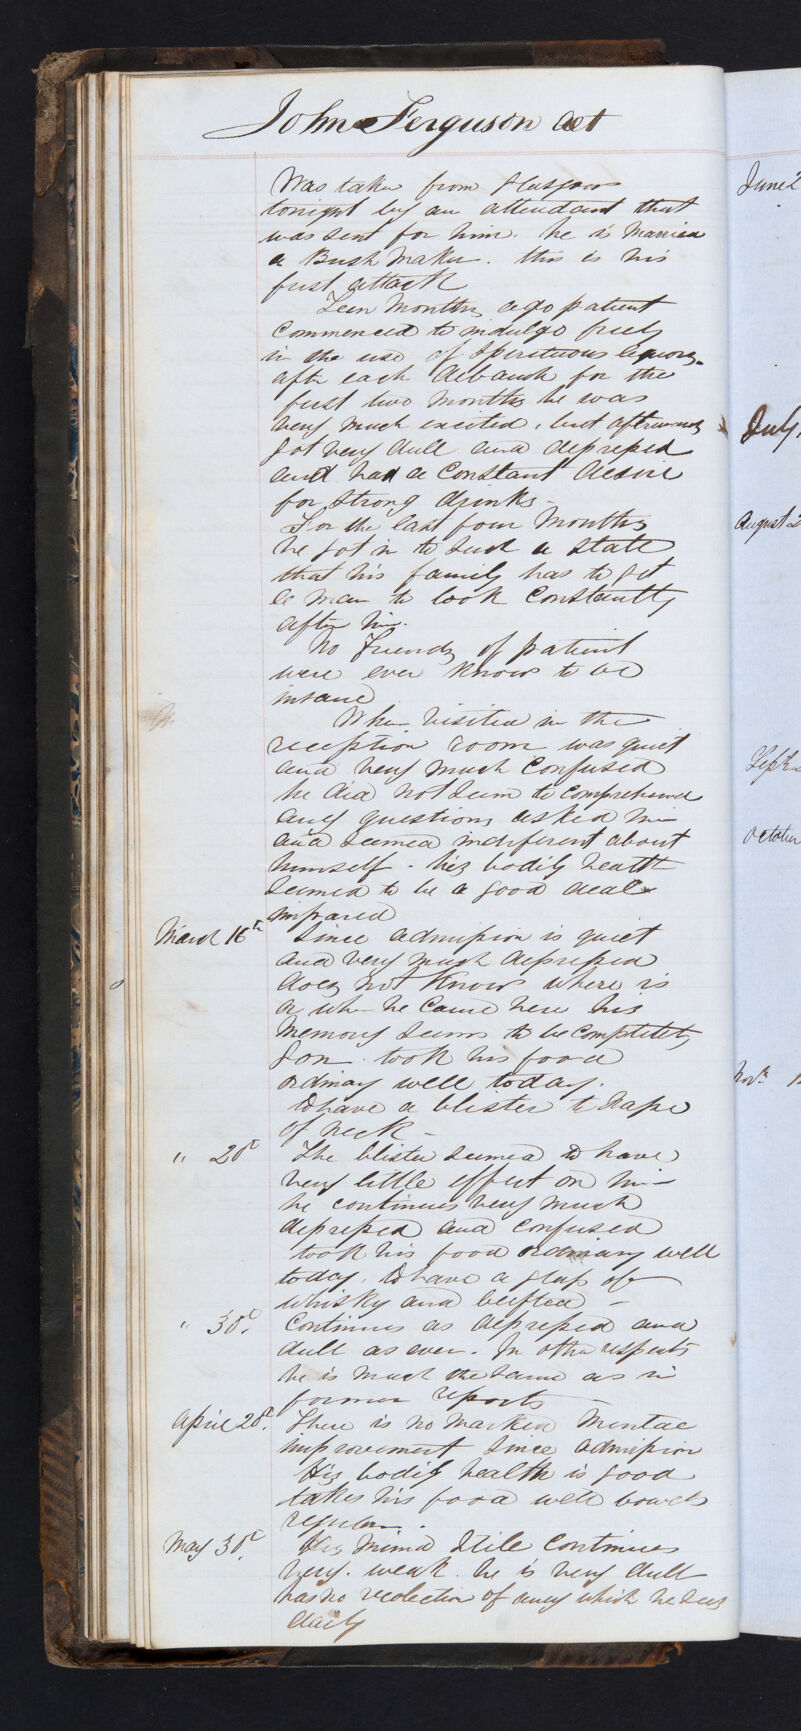 John Ferguson aet
Was taken from Glasgow
tonight by an attendant that
was sent for him. he is Married
a Brush Maker. this is his
first attack
Teen Months ago patient
Commenced to indulge freely
in the use of Sperituous liquors.
after each debauch for the
first two Months he was
very much excited, but afterwards
got very dull and depressed
and had a Constant desire
for strong drinks -
For the last four Months
he got in to such a state
that his family has to get
a man to look Constantly
after him.
No Friends of patient
were ever know to be
insane
When visited in the
reception room was quiet
and very much Confused
he did not seem to comprehend
any questions asked him
and seemed indeferent about
himself - his bodily health
seemed to be a good deal
impared
March 16th Since admission is quiet
and very much depressed
does not know where is
or when he Came here his
Memory seems to be Completely
gon took his food
ordinay well today.
To have a blister to Nape
of neck -
" 20th The blister seemed to have
very little effect on him
he continues very much
depressed and confused
took his food ordinary well
today. To have a glass of
whisky and beeftea -
" 30th. Continues as depressed and
dull as ever - In other respects
he is much the same as in
former reports -
April 20th. There is no marked Mental
improvement since admission
His bodily health is good
takes his food well bowels
regular.
May 30th. His Mind Still continues
very. weak. he is very dull
has no recolection of aney which he sees
daily
June 2
July
August 2
Sept
October
Novr